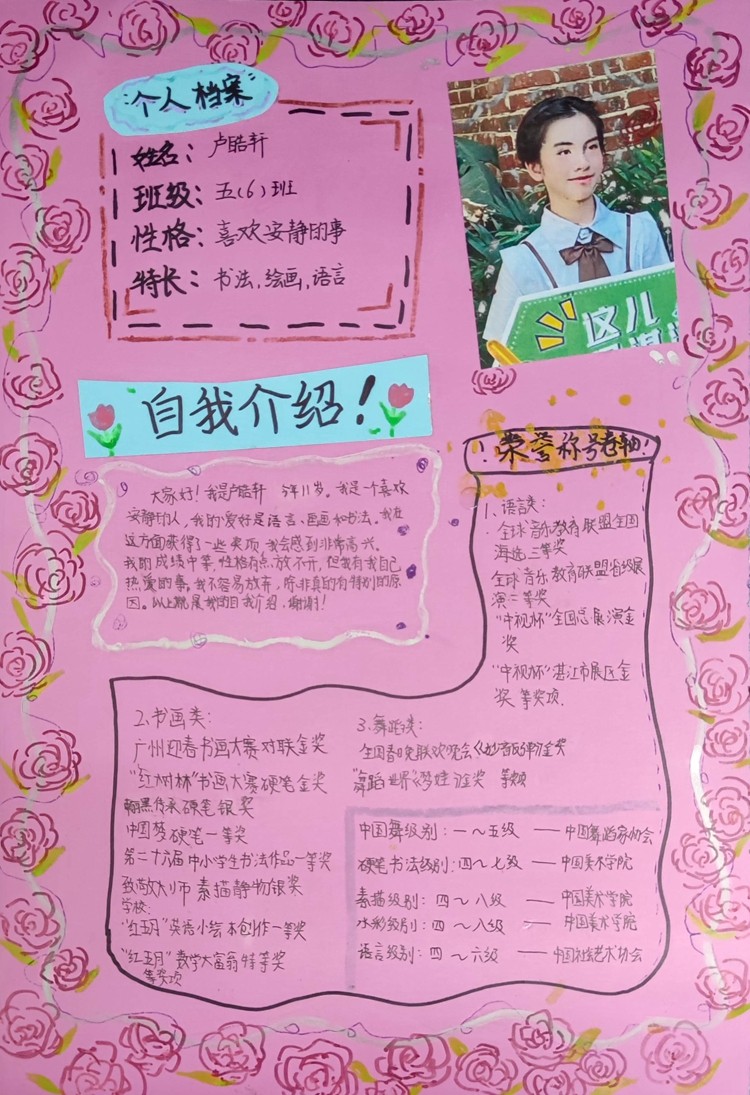 个人档案
姓名：卢皓轩
班级：五(6)班
性格：喜欢安静的事
特长：书法,绘画,语言
这儿
自我介绍！
大家好！我是卢皓轩 今年11岁。我是一个喜欢
安静的人，我的爱好是语言、画画和书法。我在
这方面获得了一些奖项,我会感到非常高兴。
我的成绩中等,性格有点放不开,但我有我自己
热爱的事,我不容易放弃,除非真的有特别的原
因。以上就是我的自我介绍,谢谢！
荣誉称号卷轴！
1、语言类：
全球音乐教育联盟全国
海选三等奖
全球音乐教育联盟省级展
演二等奖
“中视杯”全国总展演金
奖
“中视杯”湛江市展区金
奖 等奖项.
2、书画类：
广州迎春书画大赛对联金奖
“红树林”书画大赛硬笔金奖
翰墨传承硬笔银奖
中国梦硬笔一等奖
第二十六届中小学生书法作品一等奖
致敬大师素描静物银奖
学校：
“红五月”英语小绘本创作一等奖
“红五月”数学大富翁特等奖
等奖项
3、舞蹈类：
全国春晚联欢晚会
“舞蹈世界” 金奖 等
中国舞级别：一～五级 — 中国舞蹈家协会
硬笔书法级别：四～七级 — 中国美术学院
素描级别：四～八级 — 中国美术学院
水彩级别：四～八级 — 中国美术学院
语言级别：四～六级 — 中国社会艺术协会